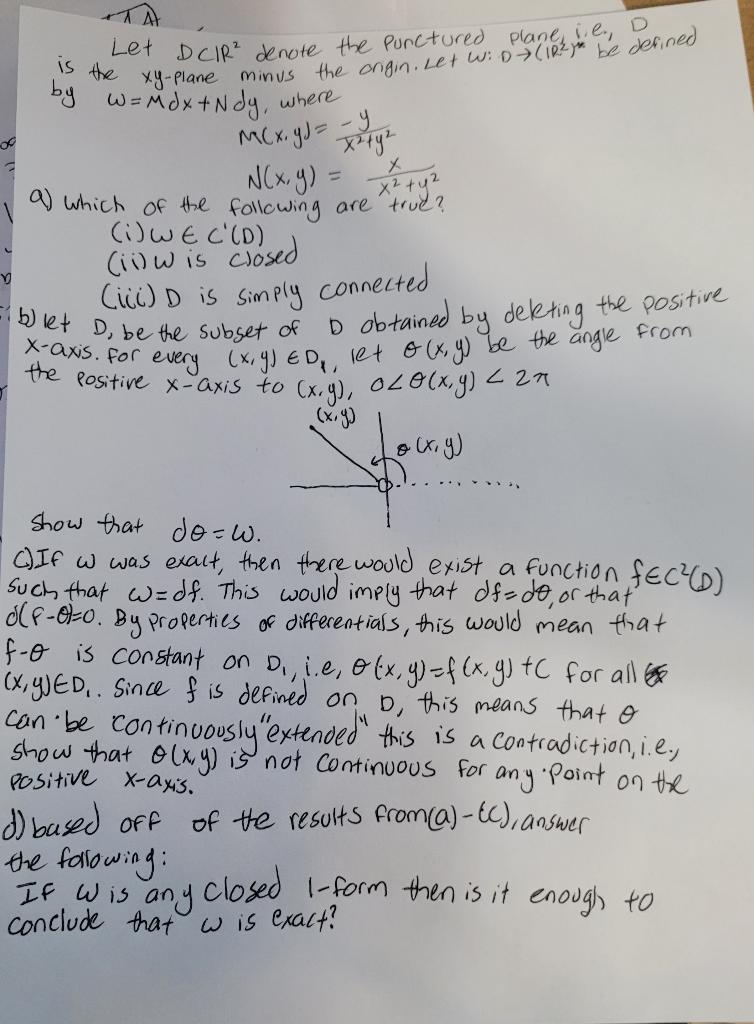 Let D⊂ℝ² denote the punctured plane, i.e., D
is the xy-plane minus the origin. Let W: D→(ℝ²)* be defined
by ω = Mdx+Ndy, where
M(x,y) = -y/x²+y²
N(x,y) = x/x²+y²
a) which of the following are true?
(i) ω ∈ C'(D)
(ii) ω is closed
(iii) D is simply connected
b) let D, be the subset of D obtained by deleting the positive
x-axis. for every (x,y) ∈ D₁, let θ(x,y) be the angle from
the positive x-axis to (x,y), 0<θ(x,y) < 2π
(x,y)
θ(x,y)
show that dθ = ω.
c) If ω was exact, then there would exist a function f∈C²(D)
such that ω=df. This would imply that df=dθ, or that
d(f-θ)=0. By properties of differentials, this would mean that
f-θ is constant on D₁, i.e, θ(x,y)=f(x,y)+C for all
(x,y)∈D₁. Since f is defined on D, this means that θ
can be continuously "extended" this is a contradiction, i.e.,
show that θ(x,y) is not continuous for any point on the
positive x-axis.
d) based off of the results from (a)-(c), answer
the following:
If ω is any closed 1-form then is it enough to
conclude that ω is exact?